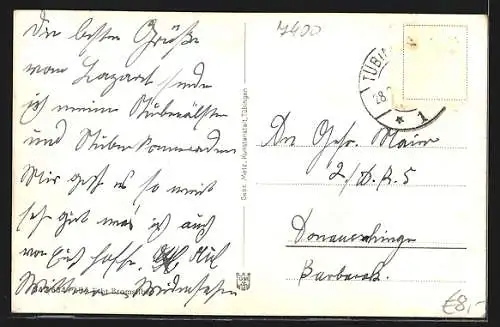 7400
Die besten Grüße
vom Lazaret sende
ich meinem Stubenältsten
und Stubenkameraden
Mir geht es so weit
sehr gut was ich auch
von Euch hoffe. Auf
Wiedersehen
Gebr. Metz, Kunstanstalt, Tübingen
TÜBI
28.
* 1
An Gefr. Maier
Donaueschingen
€8,-